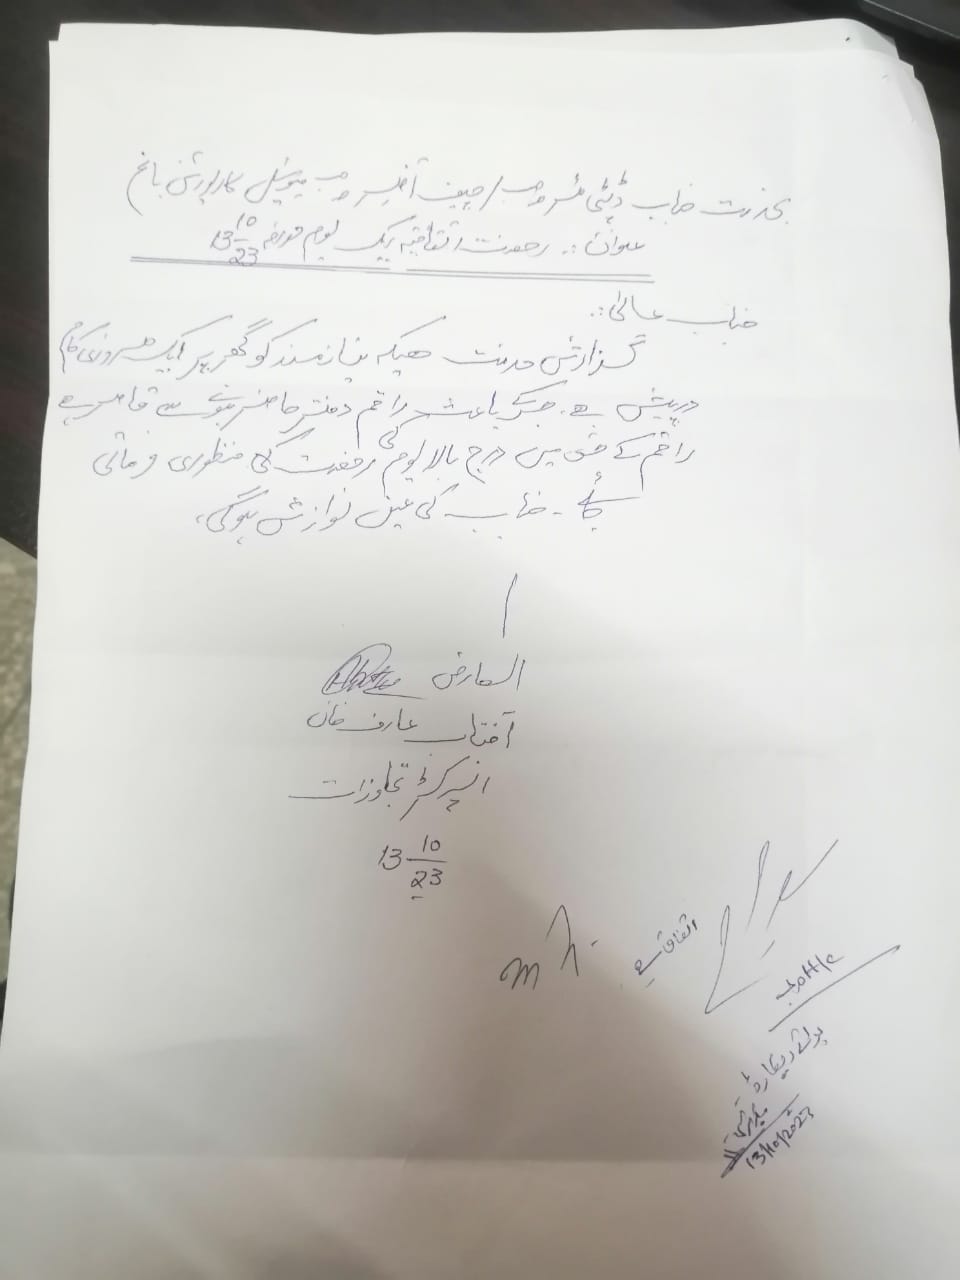 بخدمت جناب ڈپٹی مئیر صاحب / چیف آفیسر صاحب میونسپل کارپوریشن باغ
عنوان :۔ رخصت اتفاقیہ ایک یوم مورخہ 13-10-23
جناب عالیٰ :۔
گزارش خدمت ہیکہ نیازمند کو گھر پر ایک ضروری کام
درپیش ہے۔ جسکے باعث راقم دفتر حاضر ہونے سے قاصر ہے
راقم کے حق میں درج بالا یوم کی رخصت کی منظوری فرمائی
جائے۔ جناب کی عین نوازش ہوگی۔
العارض
آفتاب عارف خان
انسپکٹر تجاوزات
13-10-23
اتفاقیہ
برائے ریکارڈ
13/10/2023